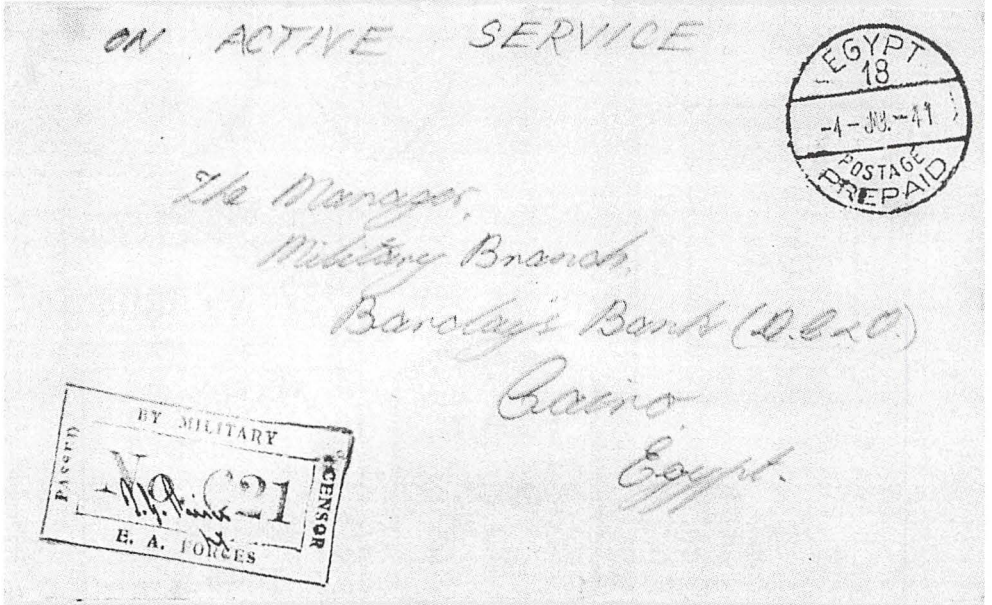 ON ACTIVE SERVICE
EGYPT
18
-4-JU.-41
POSTAGE
PREPAID
The Manager,
Military Branch,
Barclay's Bank (D.C & O.)
Cairo
Egypt.
PASSED
BY MILITARY
CENSOR
No C21
E. A. FORCES